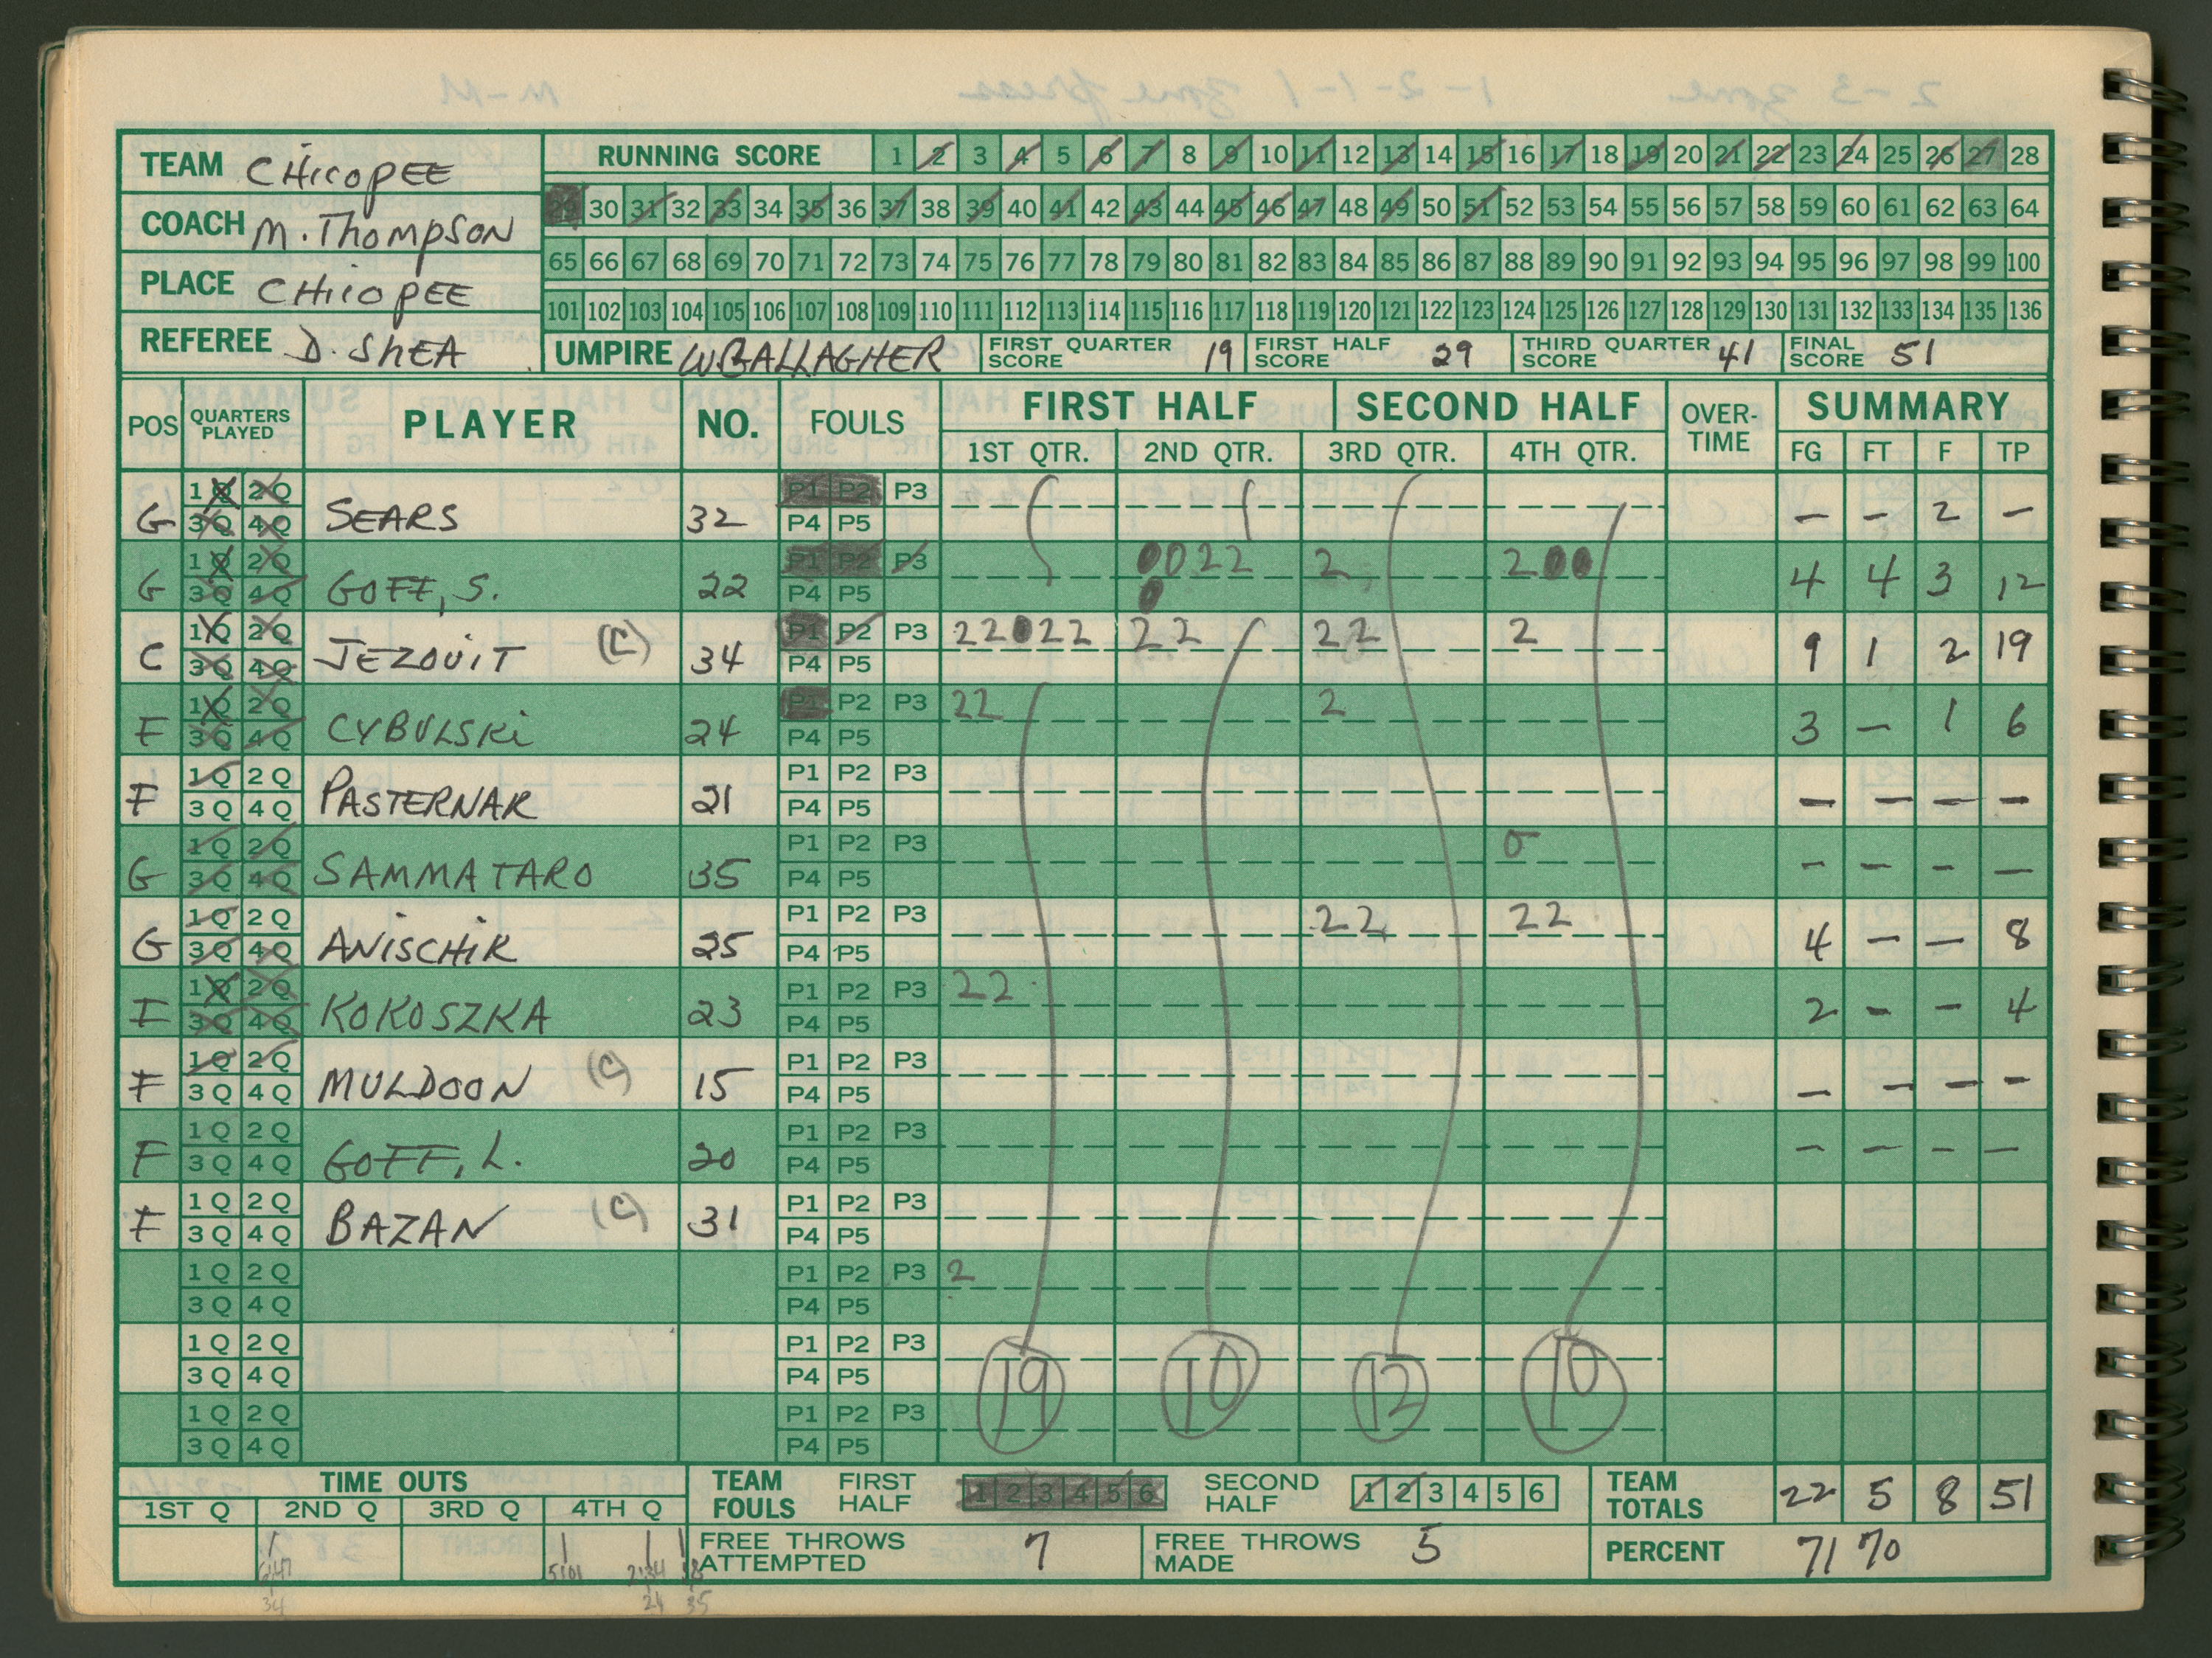 TEAM CHicopEE
COACH M. Thompson
PLACE CHicopEE
REFEREE D. ShEA
RUNNING SCORE 1 2 3 4 5 6 7 8 9 10 11 12 13 14 15 16 17 18 19 20 21 22 23 24 25 26 27 28
29 30 31 32 33 34 35 36 37 38 39 40 41 42 43 44 45 46 47 48 49 50 51 52 53 54 55 56 57 58 59 60 61 62 63 64
65 66 67 68 69 70 71 72 73 74 75 76 77 78 79 80 81 82 83 84 85 86 87 88 89 90 91 92 93 94 95 96 97 98 99 100
101 102 103 104 105 106 107 108 109 110 111 112 113 114 115 116 117 118 119 120 121 122 123 124 125 126 127 128 129 130 131 132 133 134 135 136
UMPIRE W GALLAGHER FIRST QUARTER SCORE 19 FIRST HALF SCORE 29 THIRD QUARTER SCORE 41 FINAL SCORE 51
POS QUARTERS PLAYED PLAYER NO. FOULS FIRST HALF SECOND HALF OVER-TIME SUMMARY
1ST QTR. 2ND QTR. 3RD QTR. 4TH QTR. FG FT F TP
1Q 2Q P1 P2 P3
G 3Q 4Q SEARS 32 P4 P5 – – 2 –
1Q 2Q P1 P2 P3 0022 2 200
G 3Q 4Q GOFF, S. 22 P4 P5 0 4 4 3 12
1Q 2Q P1 P2 P3 22022 22 22 2
C 3Q 4Q JEZOUIT (C) 34 P4 P5 9 1 2 19
1Q 2Q P1 P2 P3 22 2
F 3Q 4Q CYBULSKi 24 P4 P5 3 – 1 6
1Q 2Q P1 P2 P3
F 3Q 4Q PASTERNAK 21 P4 P5 – – – –
1Q 2Q P1 P2 P3 0
G 3Q 4Q SAMMATARO 35 P4 P5 – – – –
1Q 2Q P1 P2 P3 22 22
G 3Q 4Q ANiSCHiK 25 P4 P5 4 – – 8
1Q 2Q P1 P2 P3 22
F 3Q 4Q KOKOSZKA 23 P4 P5 2 – – 4
1Q 2Q P1 P2 P3
F 3Q 4Q MULDOON (C) 15 P4 P5 – – – –
1Q 2Q P1 P2 P3
F 3Q 4Q GOFF, L. 20 P4 P5 – – – –
1Q 2Q P1 P2 P3
F 3Q 4Q BAZAN (C) 31 P4 P5
1Q 2Q P1 P2 P3 2
3Q 4Q P4 P5
1Q 2Q P1 P2 P3
3Q 4Q P4 P5 19 10 12 10
1Q 2Q P1 P2 P3
3Q 4Q P4 P5
TIME OUTS
1ST Q 2ND Q 3RD Q 4TH Q
TEAM FOULS FIRST HALF 1 2 3 4 5 6 SECOND HALF 1 2 3 4 5 6 TEAM TOTALS 22 5 8 51
FREE THROWS ATTEMPTED 7 FREE THROWS MADE 5 PERCENT 71 70
34 24 35